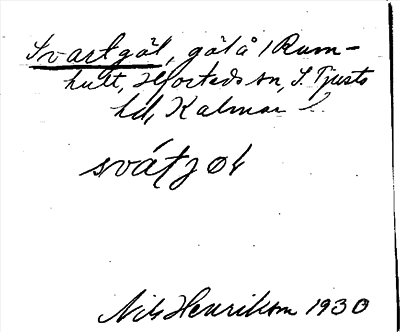 Svartgöl, göl å 1 Rum-
hult, Hjorteds sn, S. Tjusts
hd, Kalmar l
svátjöl
Nils Henrikson 1930